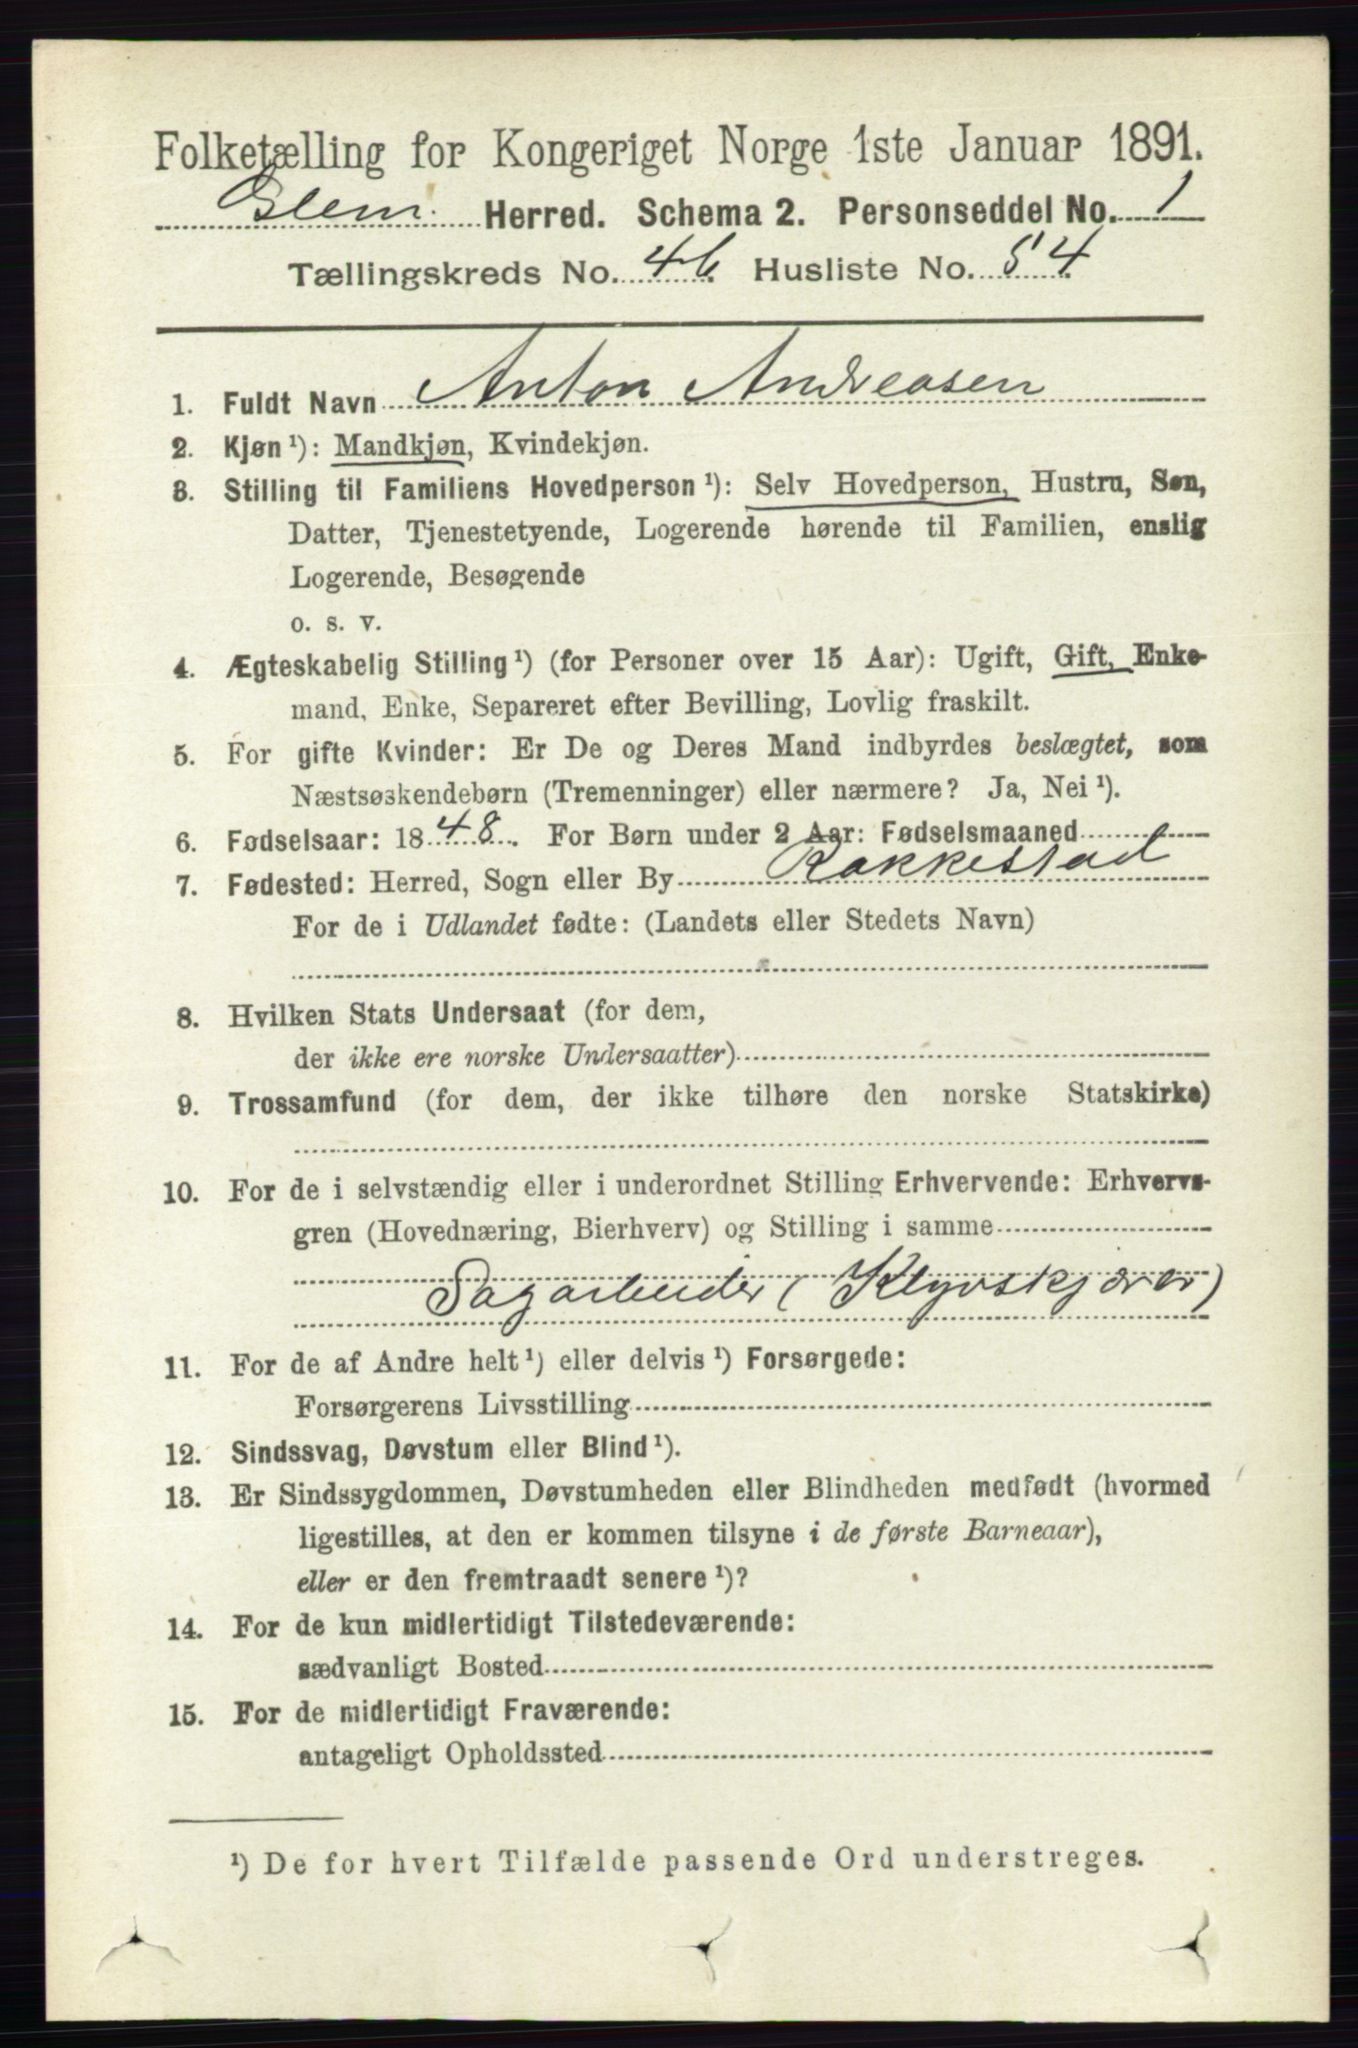 Folketælling for Kongeriget Norge 1ste Januar 1891.
Glem. Herred. Schema 2. Personseddel No. 1
Tællingskreds No. 46. Husliste No. 54.
1. Fuldt Navn Anton Andreasen
2. Kjøn ¹): Mandkjøn, Kvindekjøn.
3. Stilling til Familiens Hovedperson ¹): Selv Hovedperson, Hustru, Søn,
Datter, Tjenestetyende, Logerende hørende til Familien, enslig
Logerende, Besøgende
o. s. v.
4. Ægteskabelig Stilling ¹) (for Personer over 15 Aar): Ugift, Gift, Enke-
mand, Enke, Separeret efter Bevilling, Lovlig fraskilt.
5. For gifte Kvinder: Er De og Deres Mand indbyrdes beslægtet, som
Næstsøskendebørn (Tremenninger) eller nærmere? Ja, Nei ¹).
6. Fødselsaar: 1848. For Børn under 2 Aar: Fødselsmaaned
7. Fødested: Herred, Sogn eller By Rakkestad
For de i Udlandet fødte: (Landets eller Stedets Navn)
8. Hvilken Stats Undersaat (for dem,
der ikke ere norske Undersaatter)
9. Trossamfund (for dem, der ikke tilhøre den norske Statskirke)
10. For de i selvstændig eller i underordnet Stilling Erhvervende: Erhvervs-
gren (Hovednæring, Bierhverv) og Stilling i samme
Sagarbeider (Klyvskjærer)
11. For de af Andre helt ¹) eller delvis ¹) Forsørgede:
Forsørgerens Livsstilling
12. Sindssvag, Døvstum eller Blind ¹).
13. Er Sindssygdommen, Døvstumheden eller Blindheden medfødt (hvormed
ligestilles, at den er kommen tilsyne i de første Barneaar),
eller er den fremtraadt senere ¹)?
14. For de kun midlertidigt Tilstedeværende:
sædvanligt Bosted
15. For de midlertidigt Fraværende:
antageligt Opholdssted
¹) De for hvert Tilfælde passende Ord understreges.